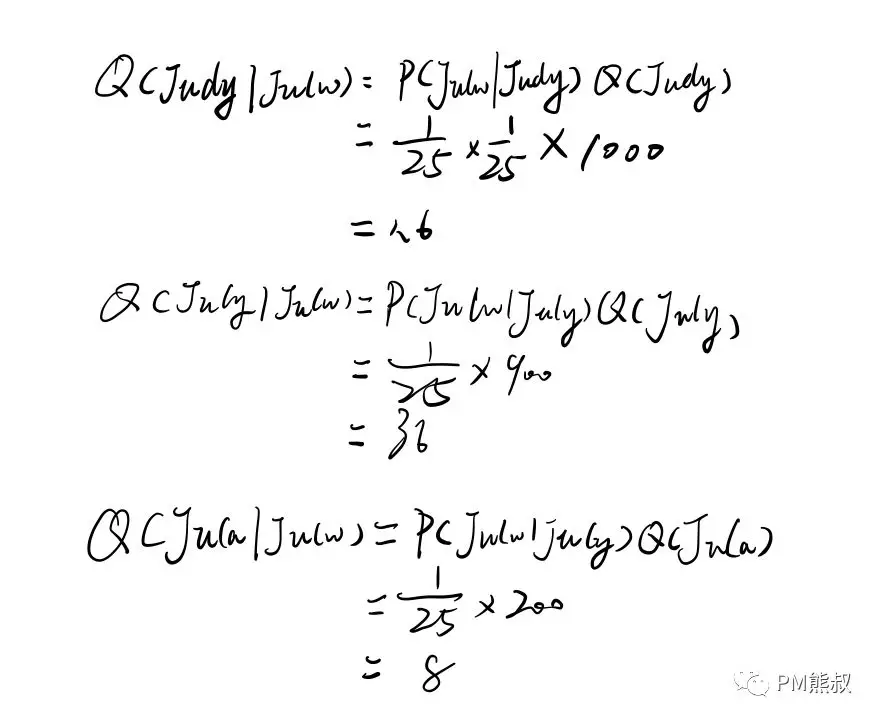 Q(Judy|Julw) = P(Julw|Judy) Q(Judy)
= 1/25 × 1/25 × 1000
= 1.6
Q(July|Julw) = P(Julw|July) Q(July)
= 1/25 × 900
= 36
Q(Jula|Julw) = P(Julw|July) Q(Jula)
= 1/25 × 200
= 8
PM熊叔